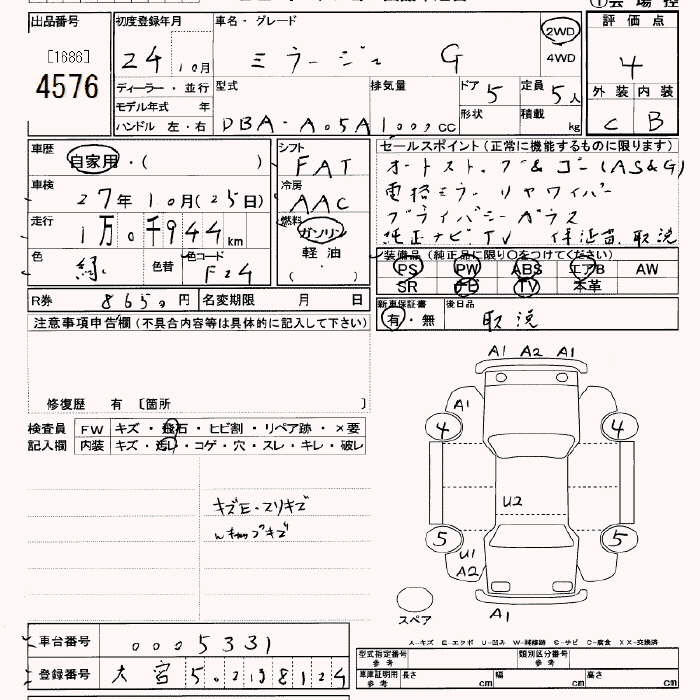 出品番号 初度登録年月 車名・グレード 評価点
[1686] 2WD
4576 24 10月 ミラージュ G 4WD 4
ディーラー・並行 型式 排気量 ドア 5 定員 5人 外装 内装
モデル年式 年 形状 積載
ハンドル 左・右 DBA-A05A 1000cc kg C B
車歴 自家用・( ) シフト FAT
車検 27年10月(25日) 冷房 AAC
走行 1万0千944km 燃料 ガソリン
軽油
( )
色 緑 色替 色コード F24
R券 8650円 名変期限 月 日
セールスポイント(正常に機能するものに限ります)
オートストップ&ゴー(AS&G)
電格ミラー リヤワイパー
プライバシーガラス
純正ナビTV 保証書、取説
装備品(純正品に限り○をつけてください)
PS PW ABS エアB AW
SR ナビ TV 本革
新車保証書 後日品
有・無 取説
注意事項申告欄(不具合内容等は具体的に記入して下さい)
修復歴 有 [箇所 ]
検査員 FW キズ・飛石・ヒビ割・リペア跡・×要
記入欄 内装 キズ・汚レ・コゲ・穴・スレ・キレ・破レ
キズE・スリキズ
A1 A2 A1
A1
4 4
U2
5 5
U1
A2
スペア
A1
A-キズ E-エクボ U-凹み W-補修跡 S-サビ C-腐食 XX-交換済
車台番号 0005331
登録番号 大宮 5
型式指定番号 参考 類別区分番号 参考
車庫証明用 参考 長さ cm 幅 cm 高さ cm